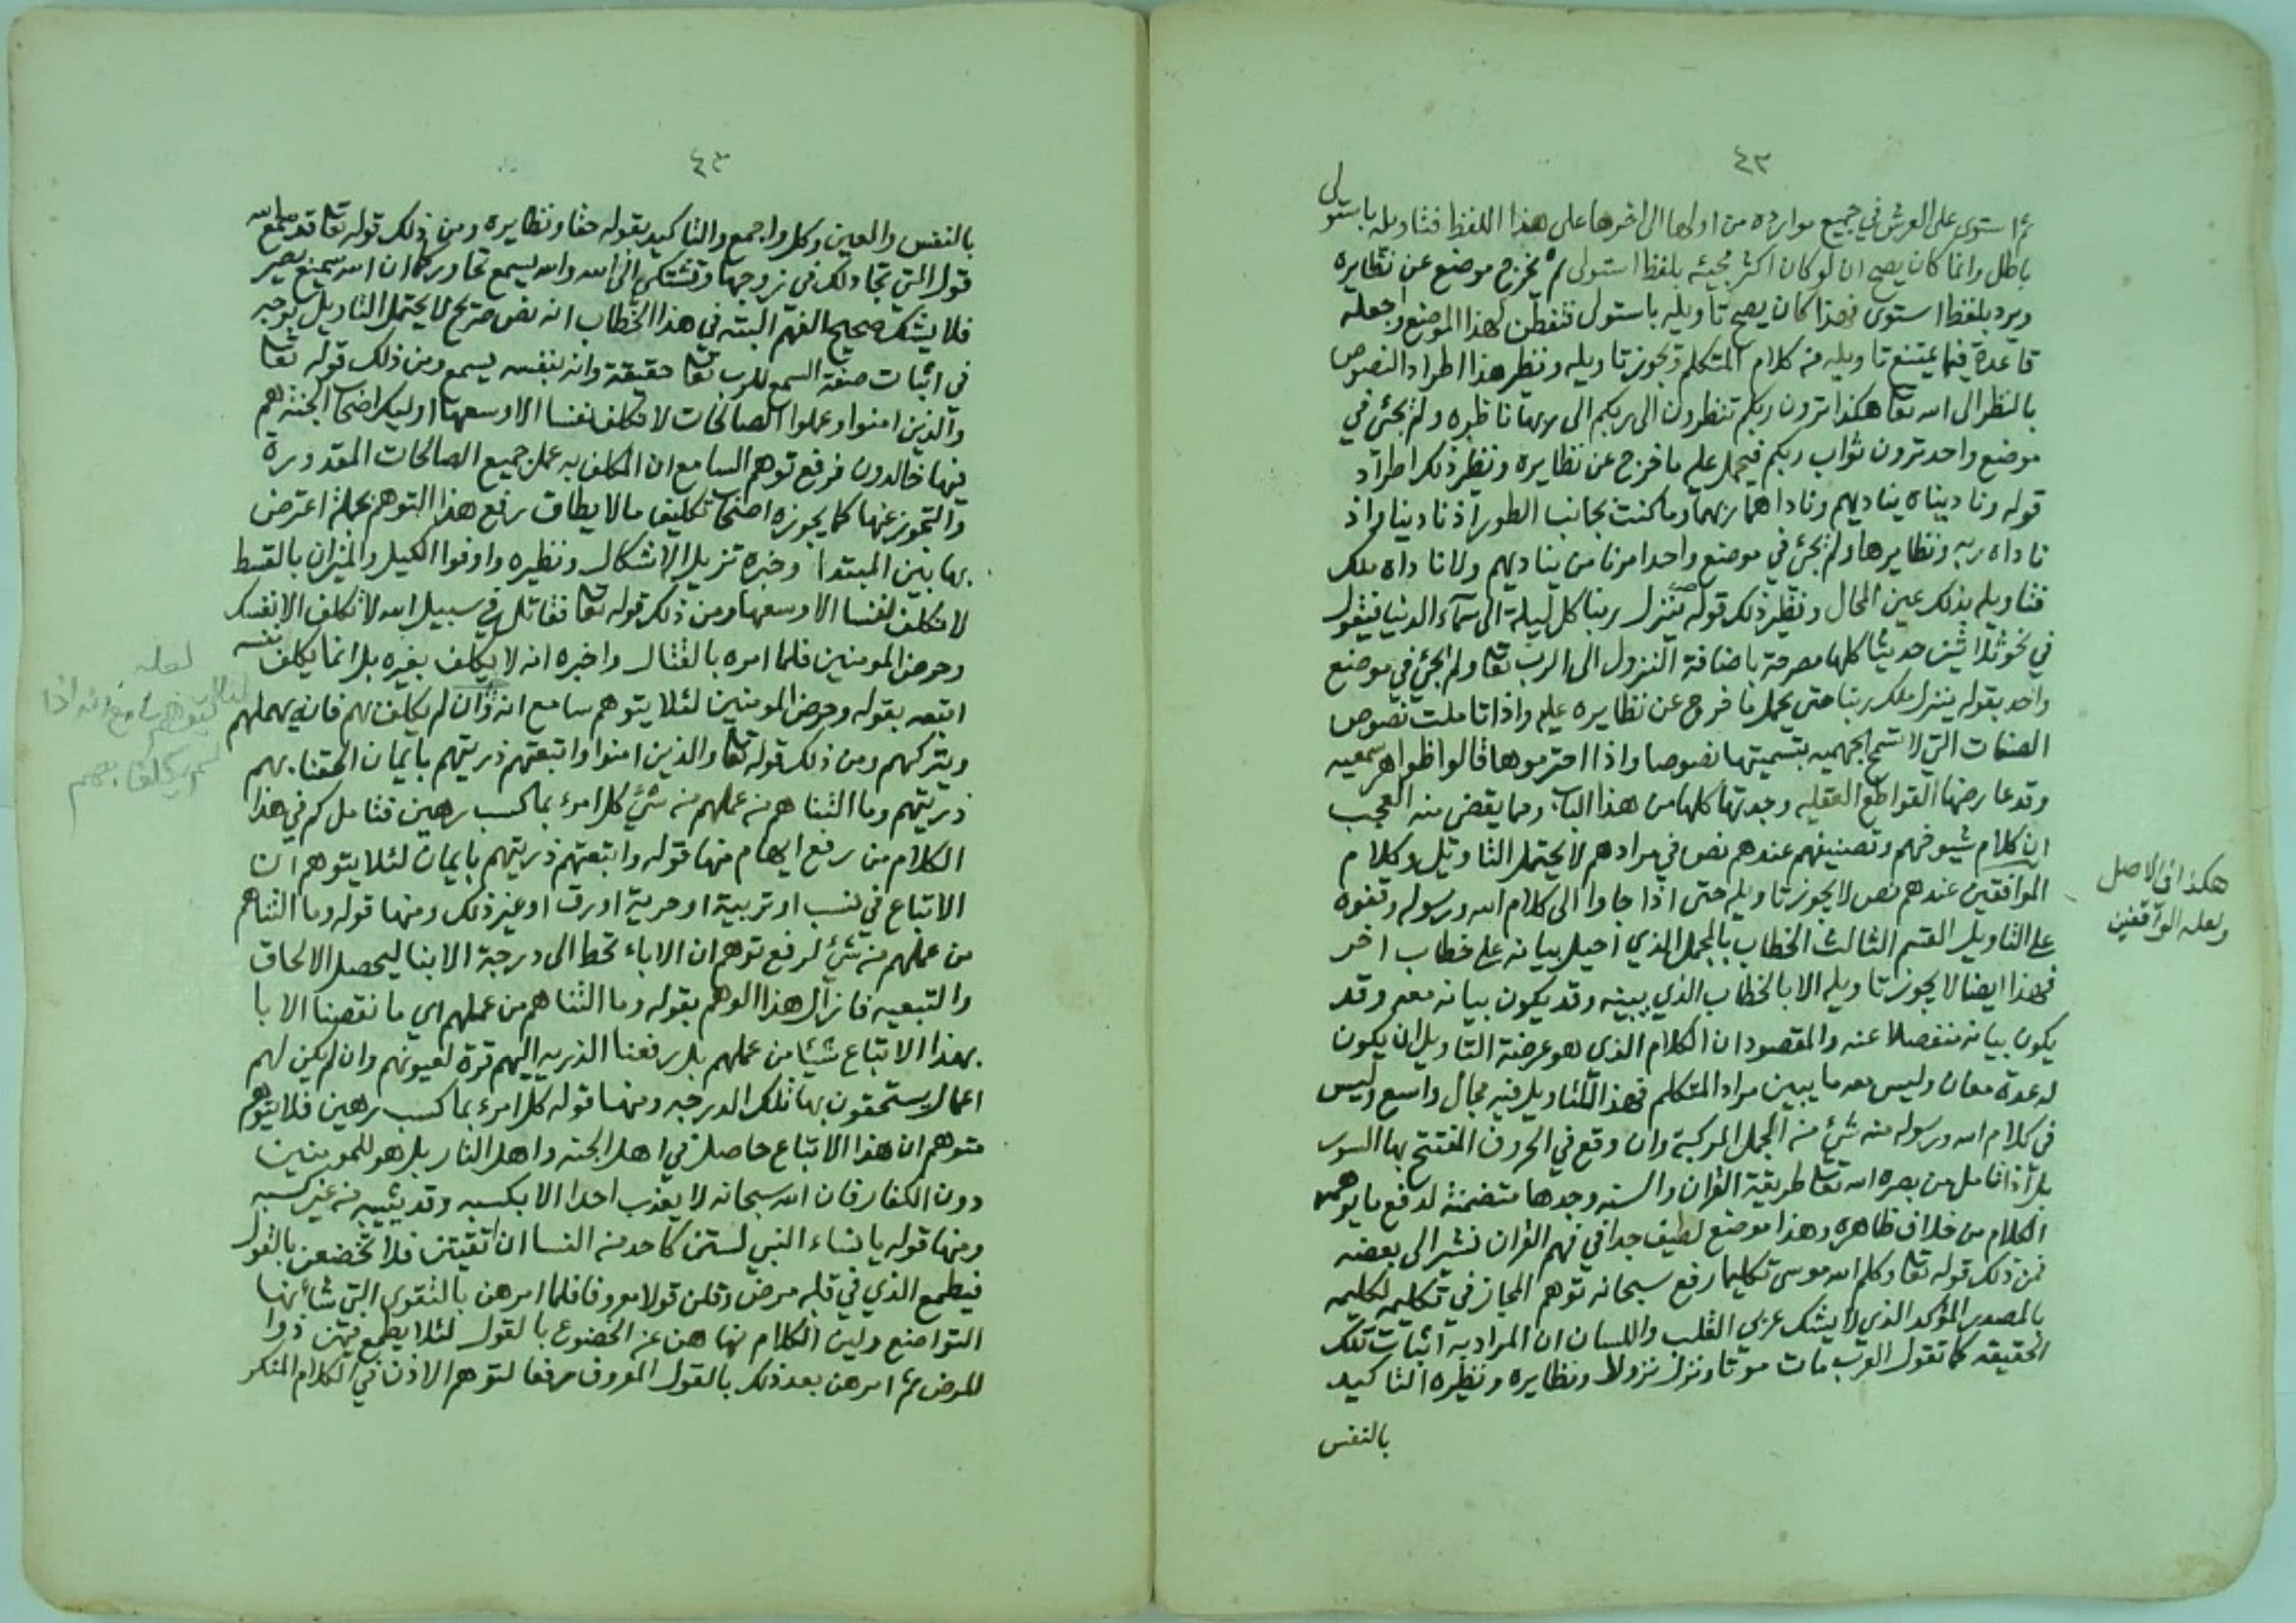 ٤٢
ثم استوى على العرش في جميع موارده من اولها الى اخرها على هذا اللفظ فتاويله باستولى
باطل وانما كان يصح ان لو كان اكثر مجيئه بلفظ استولى ثم يخرج موضع عن نظايره
ويرد بلفظ استوى فهذا كان يصح تاويله باستولى فتفطن لهذا الموضع واجعله
قاعدة فيما يمتنع تاويله من كلام المتكلم ويجوز تاويله ونظير هذا اطراد النصوص
بالنظر الى الله تعا هكذا ترون ربكم تنظرون الى ربكم الى ربها ناظره ولم يجئ في
موضع واحد ترون ثواب ربكم فيحمل عليه ما خرج عن نظايره ونظير ذلك اطراد
قوله وناديناه يناديهم وناداهما ربهما وما كنت بجانب الطور اذ نادينا واذ
ناداه ربه ونظايرها ولم يجئ في موضع واحد امرنا من يناديهم ولا ناداه ملك
فتاويله بذلك عين المحال ونظير ذلك قوله ينزل ربنا كل ليلة الى سماء الدنيا فيقول
في نحو ثلاثين حديثا كلها مصرحة باضافة النزول الى الرب تعا ولم يجئ في موضع
واحد بقوله ينزل ملك ربنا حتى يحمل ما خرج عن نظايره عليه واذا تاملت نصوص
الصفات التي لا تسمح الجهميه بتسميتها نصوصا واذا احترموها قالوا ظواهر سمعيه
وقد عارضها القواطع العقليه وجدتها كلها من هذا الباب ومما يقضى منه العجب
ان كلام شيوخهم وتصنيفهم عندهم نص في مرادهم لا يحتمل التاويل وكلام
الموافقين عندهم نص لا يجوز تاويله حتى اذا جاوا الى كلام الله ورسوله وقفوه
على التاويل القسم الثالث الخطاب بالمجمل الذي احيل بيانه على خطاب اخر
فهذا ايضا لا يجوز تاويله الا بالخطاب الذي يبينه وقد يكون بيانه معه وقد
يكون بيانه منفصلا عنه والمقصود ان الكلام الذي هو عرضة التاويل ان يكون
له عدة معان وليس معه ما يبين مراد المتكلم فهذا للتاويل فيه مجال واسع وليس
في كلام الله ورسوله منه شيئ من الجمل المركبة وان وقع في الحروف المفتتح بها السور
بل اذا تامل من بصره الله تعا طريقة القران والسنه وجدها متضمنة لدفع ما يوهمه
الكلام من خلاف ظاهره وهذا موضع لطيف جدا في فهم القران نشير الى بعضه
فمن ذلك قوله تعا وكلم الله موسى تكليما رفع سبحانه توهم المجاز في تكليمه لكليمه
بالمصدر المؤكد الذي لا يشك عربي القلب واللسان ان المراد به اثبات تلك
الحقيقه كما تقول العرب مات موتا ونزل نزولا ونظايره ونظيره التاكيد
بالنفس
هكذا في الاصل
ولعله الواقفين
٤٣
بالنفس والعين وكل واجمع والتاكيد بقوله حقا ونظايره ومن ذلك قوله تعا قد سمع الله
قول التي تجادلك في زوجها وتشتكي الى الله والله يسمع تحاوركما ان الله سميع بصير
فلا يشك صحيح الفهم البته في هذا الخطاب انه نص صريح لا يحتمل التاويل بوجه
في اثبات صفة السمع للرب تعا حقيقة وانه بنفسه يسمع ومن ذلك قوله تعا
والذين امنوا وعملوا الصالحات لا نكلف نفسا الا وسعها اوليك اصحاب الجنة هم
فيها خالدون فرفع توهم السامع ان المكلف به عمل جميع الصالحات المقدورة
والمعجوز عنها كما يجوزه اصحاب تكليف مالا يطاق رفع هذا التوهم بجملة اعترض
بها بين المبتدا وخبره تزيل الاشكال ونظيره واوفوا الكيل والميزان بالقسط
لا نكلف نفسا الا وسعها ومن ذلك قوله تعا فقاتل في سبيل الله لا تكلف الا نفسك
وحرض المومنين فلما امره بالقتال واخبره انه لا يكلف بغيره بل انما يكلف نفسه
اتبعه بقوله وحرض المومنين لئلا يتوهم سامع انه وان لم يكلف بهم فانه يهملهم
ويتركهم ومن ذلك قوله تعا والذين امنوا واتبعتهم ذريتهم بايمان الحقنا بهم
ذريتهم وما التناهم من عملهم من شيئ كل امرء بما كسب رهين فتامل كم في هذا
الكلام من رفع ايهام منها قوله واتبعتهم ذريتهم بايمان لئلا يتوهم ان
الاتباع في نسب او تربية او حرية او رق او غير ذلك ومنها قوله وما التناهم
من عملهم من شيئ لرفع توهم ان الاباء تحط الى درجة الابنا ليحصل الالحاق
والتبعيه فازال هذا الوهم بقوله وما التناهم من عملهم اي ما نقصنا الابا
بهذا الاتباع شيئا من عملهم بل رفعنا الذريه اليهم قرة لعيونهم وان لم يكن لهم
اعمال يستحقون بها تلك الدرجه ومنها قوله كل امرء بما كسب رهين فلا يتوهم
متوهم ان هذا الاتباع حاصل في اهل الجنه واهل النار بل هو للمومنين
دون الكفار فان الله سبحانه لا يعذب احدا الا بكسبه وقد يثيبه من غير كسبه
ومنها قوله يا نساء النبي لستن كاحد من النسا ان اتقيتن فلا تخضعن بالقول
فيطمع الذي في قلبه مرض وقلن قولا معروفا فلما امرهن بالتقوى التي شانها
التواضع ولين الكلام نهاهن عن الخضوع بالقول لئلا يطمع فيهن ذوا
المرض ثم امرهن بعد ذلك بالقول المعروف رفعا لتوهم الاذن في الكلام المنكر
لعله
لئلا يتوهم سامع انه اذا
لم يكلف بهم